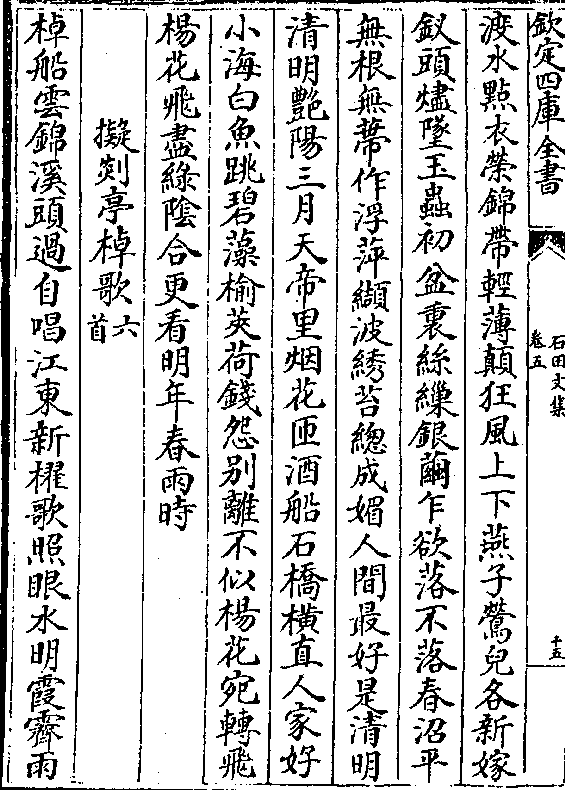 欽定四庫全書
石田文集
卷五
十五
渡水點衣縈錦帶輕薄顛狂風上下燕子鶯兒各新嫁
釵頭燼墜玉蟲初盆裏絲繅銀繭乍欲落不落春沼平
無根無蔕作浮萍纈波綉苔緫成媚人間最好是清明
清明艷陽三月天帝里烟花匝酒船石橋橫直人家好
小海白魚跳碧藻榆莢荷錢怨别離不似楊花宛轉飛
楊花飛盡綠隂合更看明年春雨時
擬剡亭棹歌六首
棹船雲錦溪頭過自唱江東新櫂歌照眼水明霞霽雨